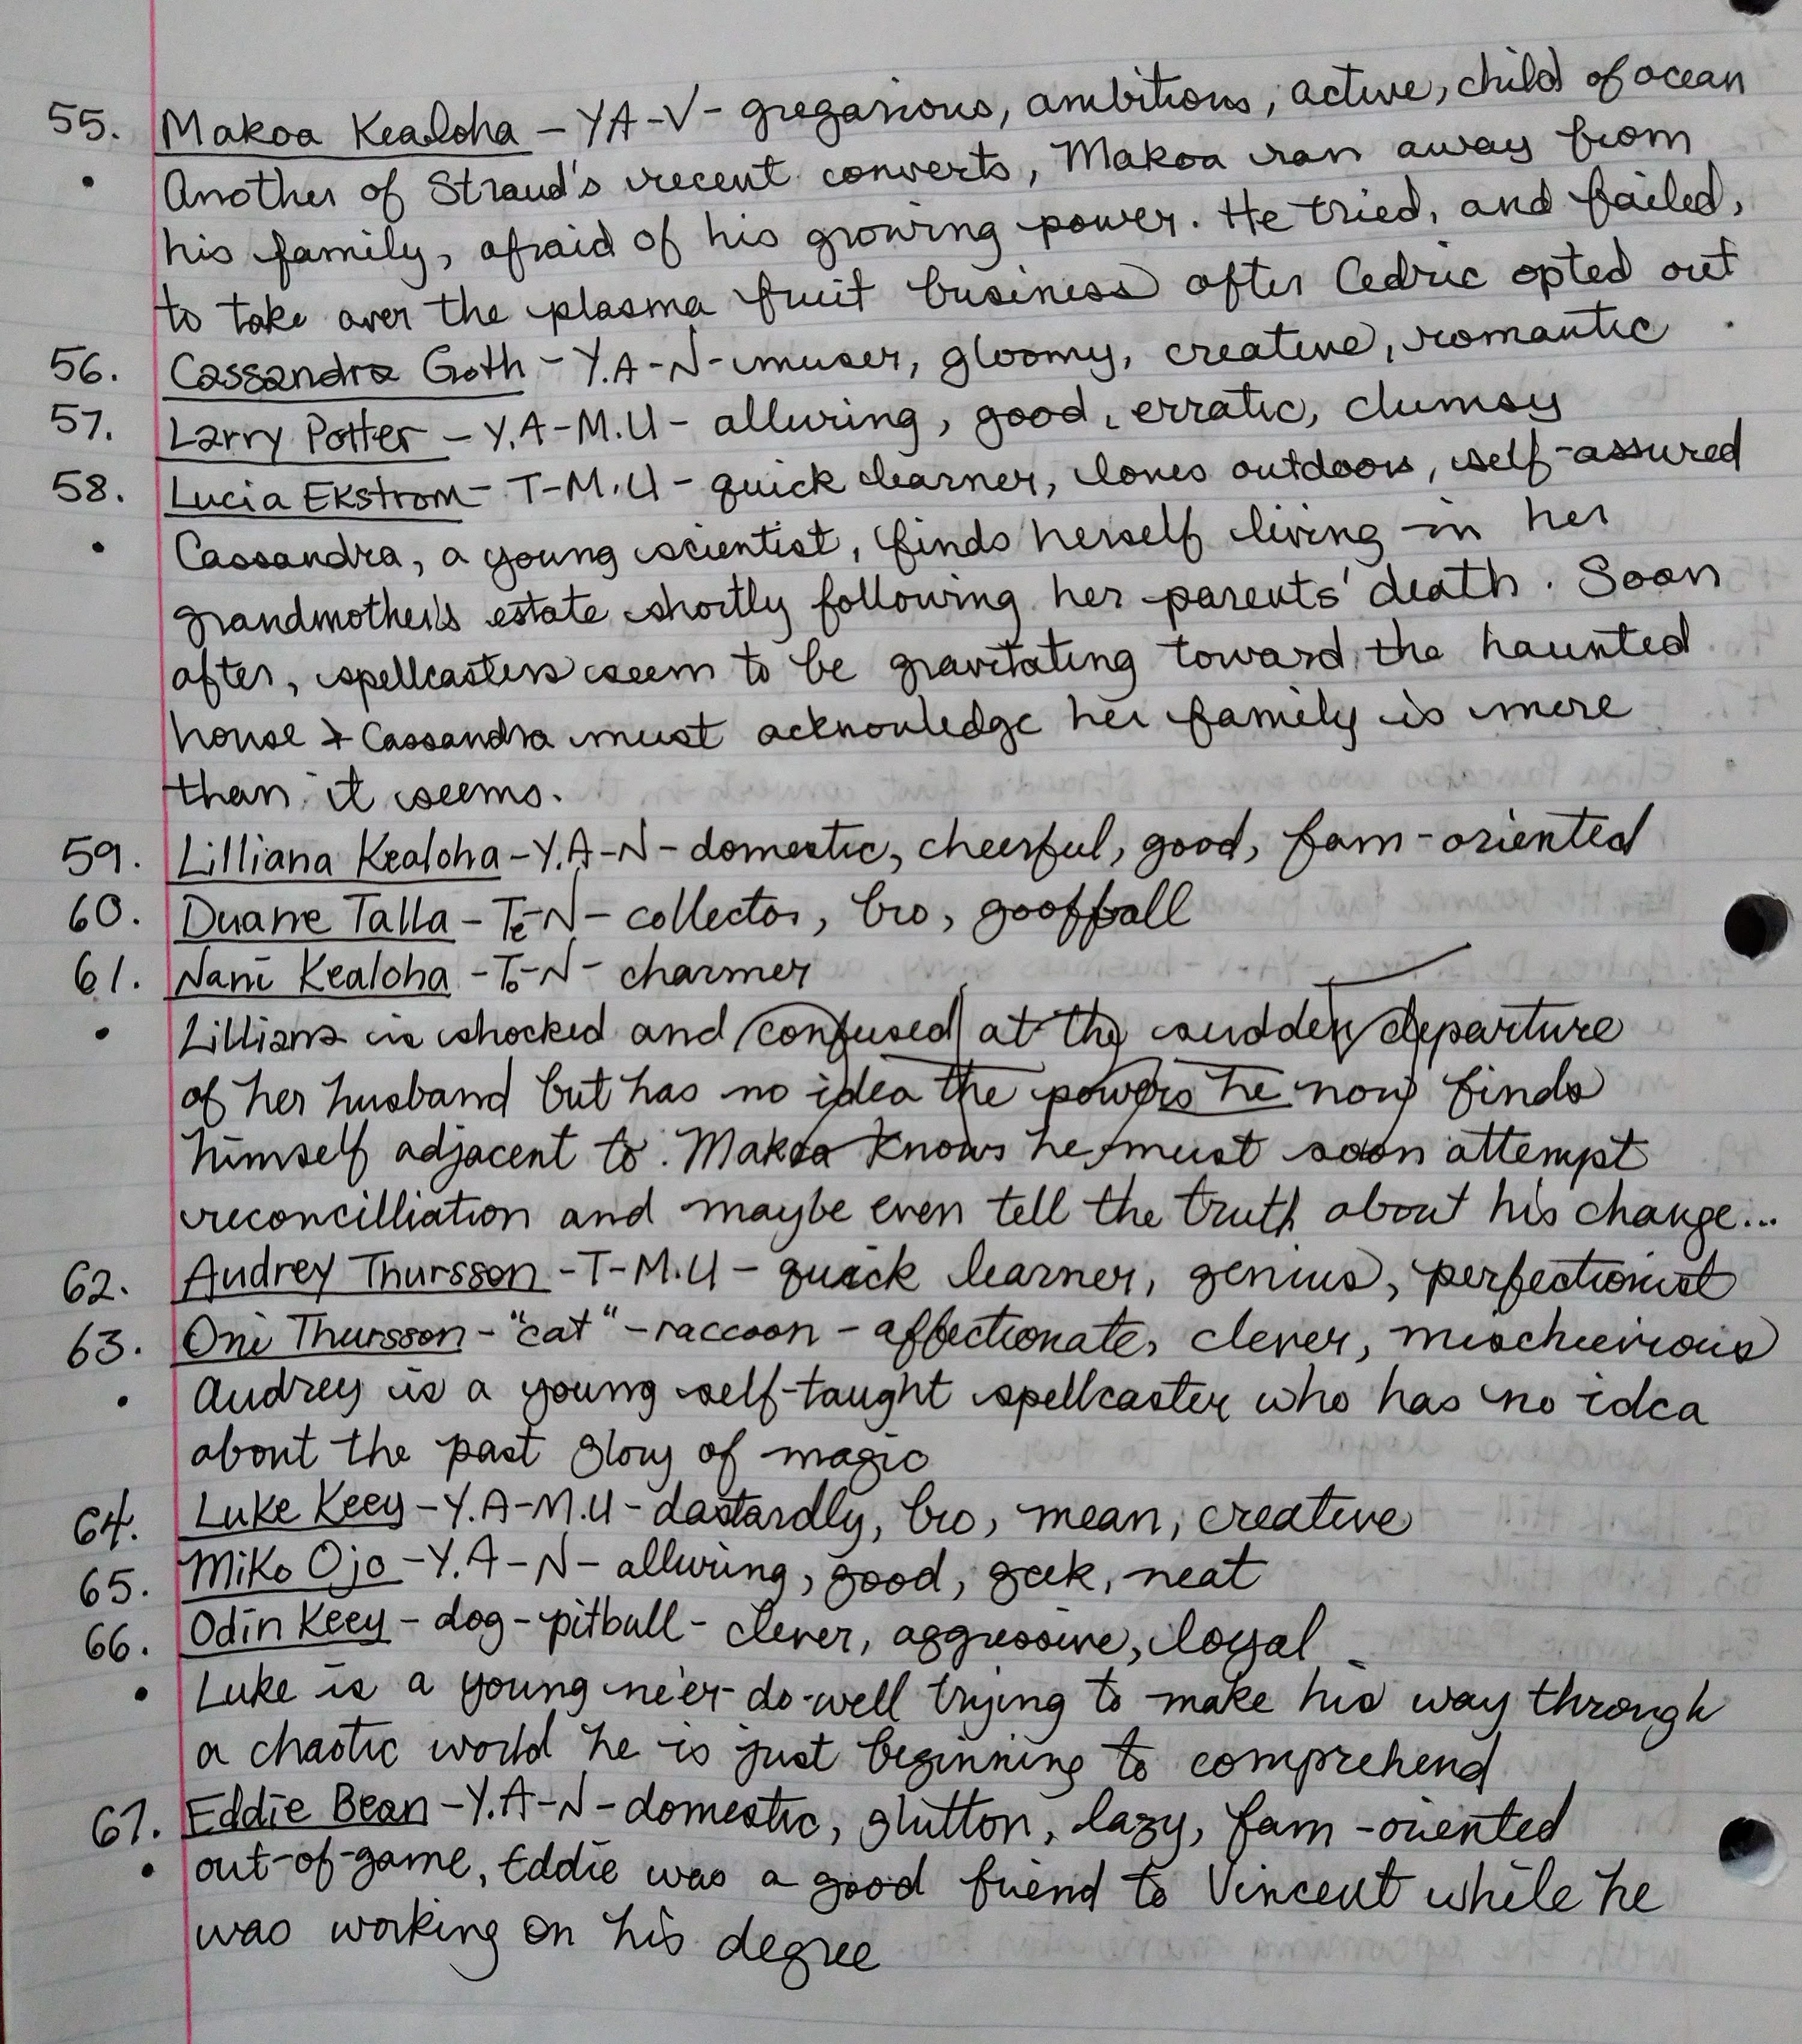 55. Makoa Kealoha - YA-V- gregarious, ambitious, active, child of ocean
• Another of Straud's recent converts, Makoa ran away from
his family, afraid of his growing power. He tried, and failed,
to take over the plasma fruit business after Cedric opted out
56. Cassandra Goth - Y.A-N- muser, gloomy, creative, romantic
57. Larry Potter - Y.A-M.U- alluring, good, erratic, clumsy
58. Lucia Ekstrom - T-M.U- quick learner, loves outdoors, self-assured
• Cassandra, a young scientist, finds herself living in her
grandmother's estate shortly following her parents' death. Soon
after, spellcasters seem to be gravitating toward the haunted
house & Cassandra must acknowledge her family is more
than it seems.
59. Lilliana Kealoha - Y.A-N- domestic, cheerful, good, fam-oriented
60. Duane Talla - Te-N- collector, bro, goofball
61. Nani Kealoha - To-N- charmer
• Lilliana is shocked and confused at the sudden departure
of her husband but has no idea the powers he now finds
himself adjacent to. Makoa knows he must soon attempt
reconcilliation and maybe even tell the truth about his change...
62. Audrey Thursson - T-M.U - quick learner, genius, perfectionist
63. Oni Thursson - "cat" - raccoon - affectionate, clever, mischeivious
• Audrey is a young self-taught spellcaster who has no idea
about the past glory of magic
64. Luke Keey - Y.A-M.U - dastardly, bro, mean, creative
65. Miko Ojo - Y.A-N- alluring, good, geek, neat
66. Odin Keey - dog - pitbull - clever, aggressive, loyal
• Luke is a young ne'er-do-well trying to make his way through
a chaotic world he is just beginning to comprehend
67. Eddie Bean - Y.A-N- domestic, glutton, lazy, fam-oriented
• out-of-game, Eddie was a good friend to Vincent while he
was working on his degree